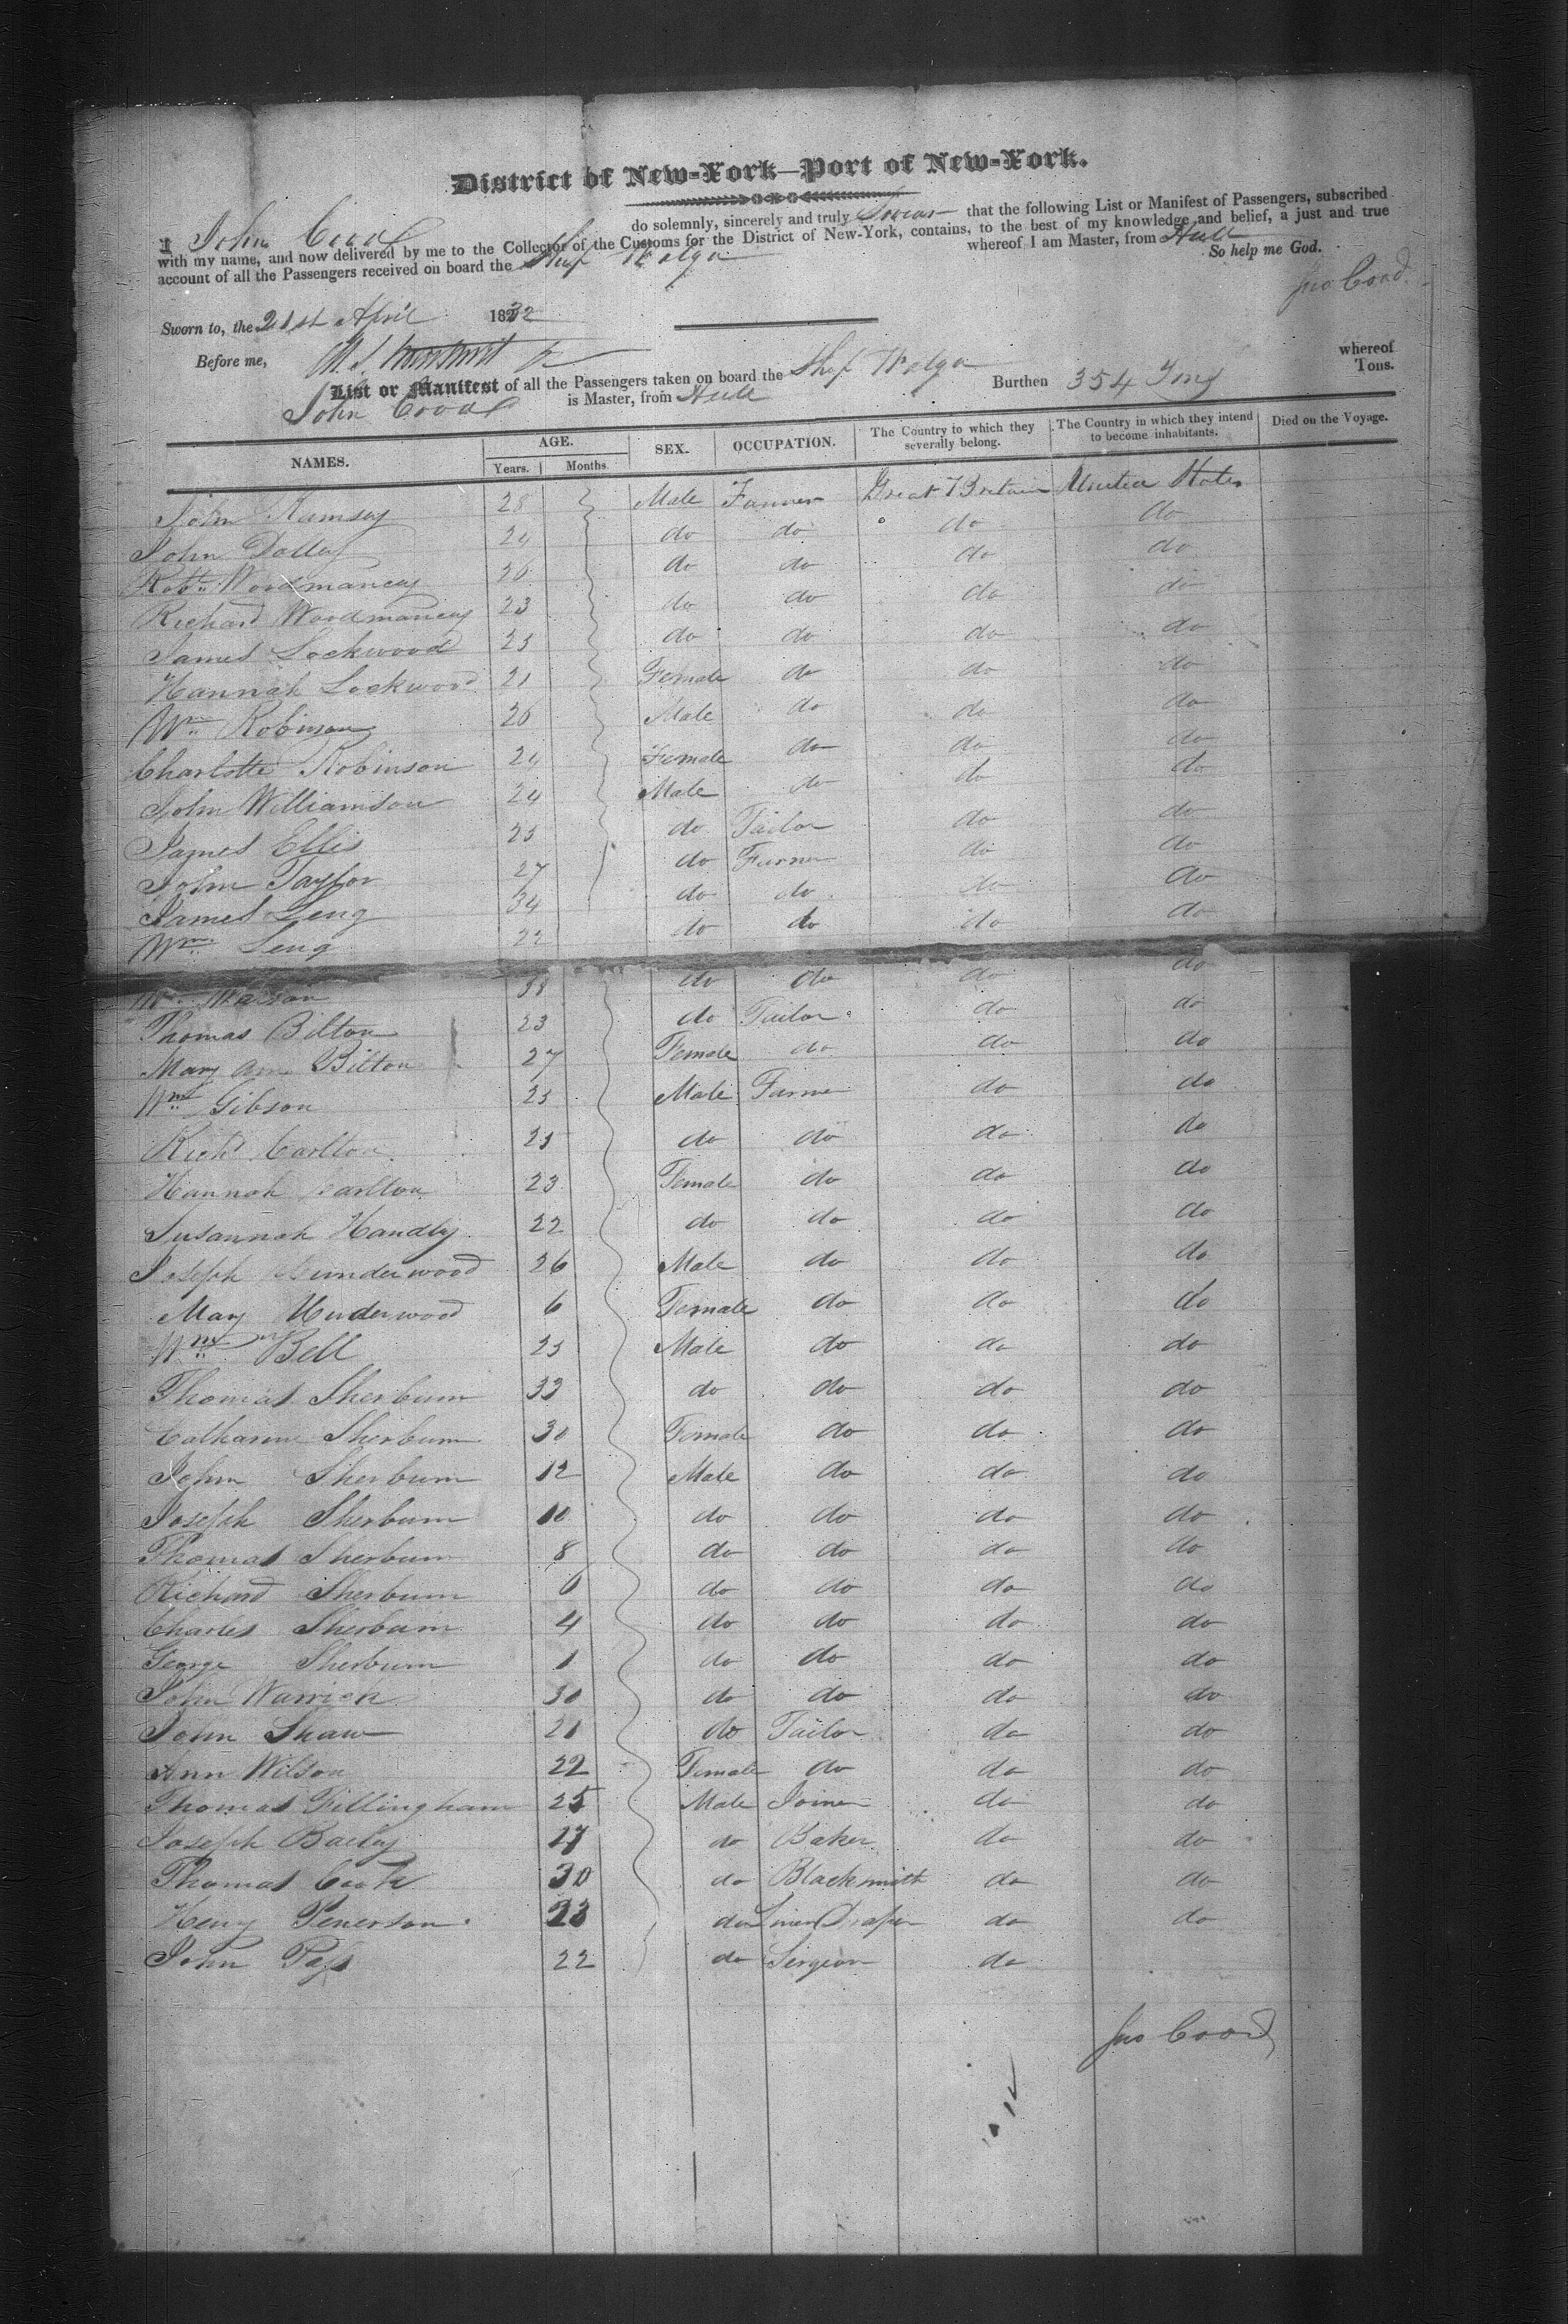 District of New-York—Port of New-York.
I John Cood do solemnly, sincerely and truly Swear that the following List or Manifest of Passengers, subscribed
with my name, and now delivered by me to the Collector of the Customs for the District of New-York, contains, to the best of my knowledge and belief, a just and true
account of all the Passengers received on board the Ship Volga whereof I am Master, from Hull
So help me God.
Jno Cood
Sworn to, the 21st April 1832
Before me,
List or Manifest of all the Passengers taken on board the Ship Volga whereof
John Cood is Master, from Hull Burthen 354 Tons Tons.
NAMES. AGE. SEX. OCCUPATION. The Country to which they severally belong. The Country in which they intend to become inhabitants. Died on the Voyage.
Years. Months.
John Ramsey 28 Male Farmer Great Britain United States
John Dolley 24 do do do do
Robt Woodmancey 26 do do do do
Richard Woodmancey 23 do do do do
James Lockwood 25 do do do do
Hannah Lockwood 21 Female do do do
Wm Robinson 26 Male do do do
Charlotte Robinson 24 Female do do do
John Williamson 24 Male do do do
James Ellis 25 do Tailor do do
John Taylor 27 do Farmer do do
James Leng 34 do do do do
Wm Leng 22 do do do do
Wm 38 do do do do
Thomas Bilton 23 do Tailor do do
Mary Ann Bilton 27 Female do do do
Wm Gibson 25 Male Farmer do do
Richd Carlton 25 do do do do
Hannah Carlton 23 Female do do do
Susannah Handly 22 do do do do
Joseph Underwood 26 Male do do do
Mary Underwood 6 Female do do do
Wm Bell 25 Male do do do
Thomas Sherburn 33 do do do do
Catharine Sherburn 30 Female do do do
John Sherburn 12 Male do do do
Joseph Sherburn 10 do do do do
Thomas Sherburn 8 do do do do
Richard Sherburn 6 do do do do
Charles Sherburn 4 do do do do
George Sherburn 1 do do do do
John Warrick 30 do do do do
John Shaw 21 do Tailor do do
Ann Wilson 22 Female do do do
Thomas Fillingham 25 Male Joiner do do
Joseph Bailey 27 do Baker do do
Thomas Cook 30 do Blacksmith do do
Henry Penerson 23 do Linen Draper do do
John Pass 22 do Sergeon do
Jno Cood